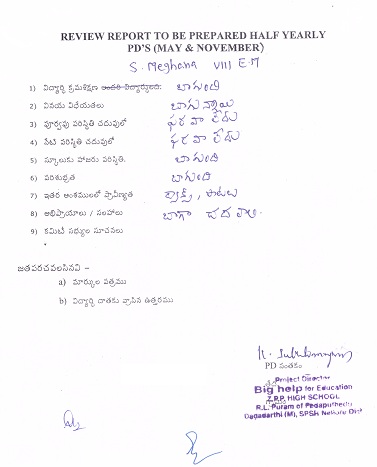 REVIEW REPORT TO BE PREPARED HALF YEARLY
PD'S (MAY & NOVEMBER)
S. Meghana VIII E.M
1) విద్యార్థి క్రమశిక్షణ అంతరి విద్యార్థులది: బాగుంది
2) వినయ విధేయతలు బాగున్నాయి
3) పూర్వపు పరిస్థితి చదువులో ఫరవాలేదు
4) నేటి పరిస్థితి చదువులో ఫరవాలేదు
5) స్కూలుకు హాజరు పరిస్థితి. బాగుంది
6) పరిశుభ్రత బాగుంది
7) ఇతర అంశములలో ప్రావీణ్యత పాటలు
8) అభిప్రాయాలు / సలహాలు బాగా చదవాలి.
9) కమిటీ సభ్యుల సూచనలు
జతపరచవలసినవి –
a) మార్కుల పత్రము
b) విద్యార్థి దాతకు వ్రాసిన ఉత్తరము
PD సంతకం
Project Director
Big help for Education
Z.P.P. HIGH SCHOOL
R.L. Puram of Pedaputhedu
Dagadarthi (M), SPSR Nellore Dist